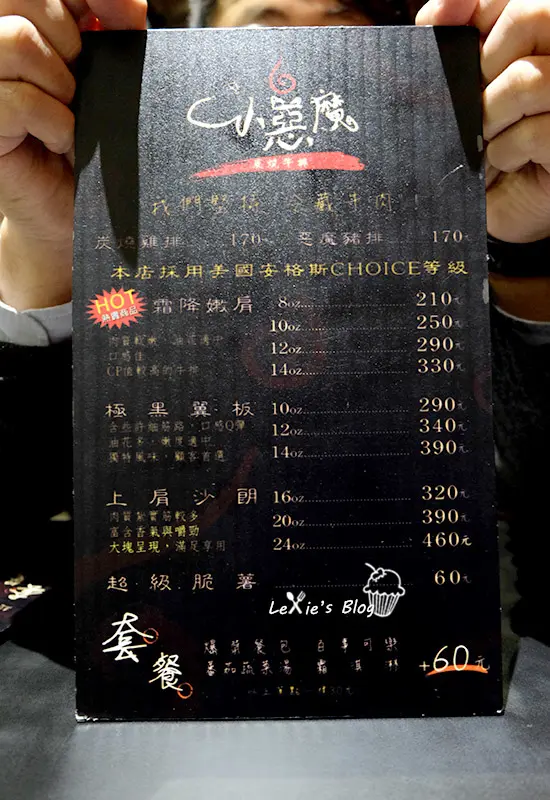 小惡魔
炭燒牛排
我們堅持 牛肉！
炭燒雞排 170元 惡魔豬排 170元
本店採用美國安格斯CHOICE等級
HOT
熱賣商品
霜降嫩肩 8oz 210元
10oz 250元
肉質較嫩 油花適中 12oz 290元
口感佳
CP值較高的牛排 14oz 330元
極黑翼板 10oz 290元
含些許細筋路，口感Q彈 12oz 340元
油花多，嫩度適中
獨特風味，顧客首選 14oz 390元
上肩沙朗 16oz 320元
肉質緊實筋較多 20oz 390元
富含香氣與嚼勁
大塊呈現，滿足享用 24oz 460元
超級脆薯 60元
LeXie's Blog
套餐
爆漿餐包 百事可樂
蕃茄蔬菜湯 霜淇淋
+60元
以上單點一樣30元